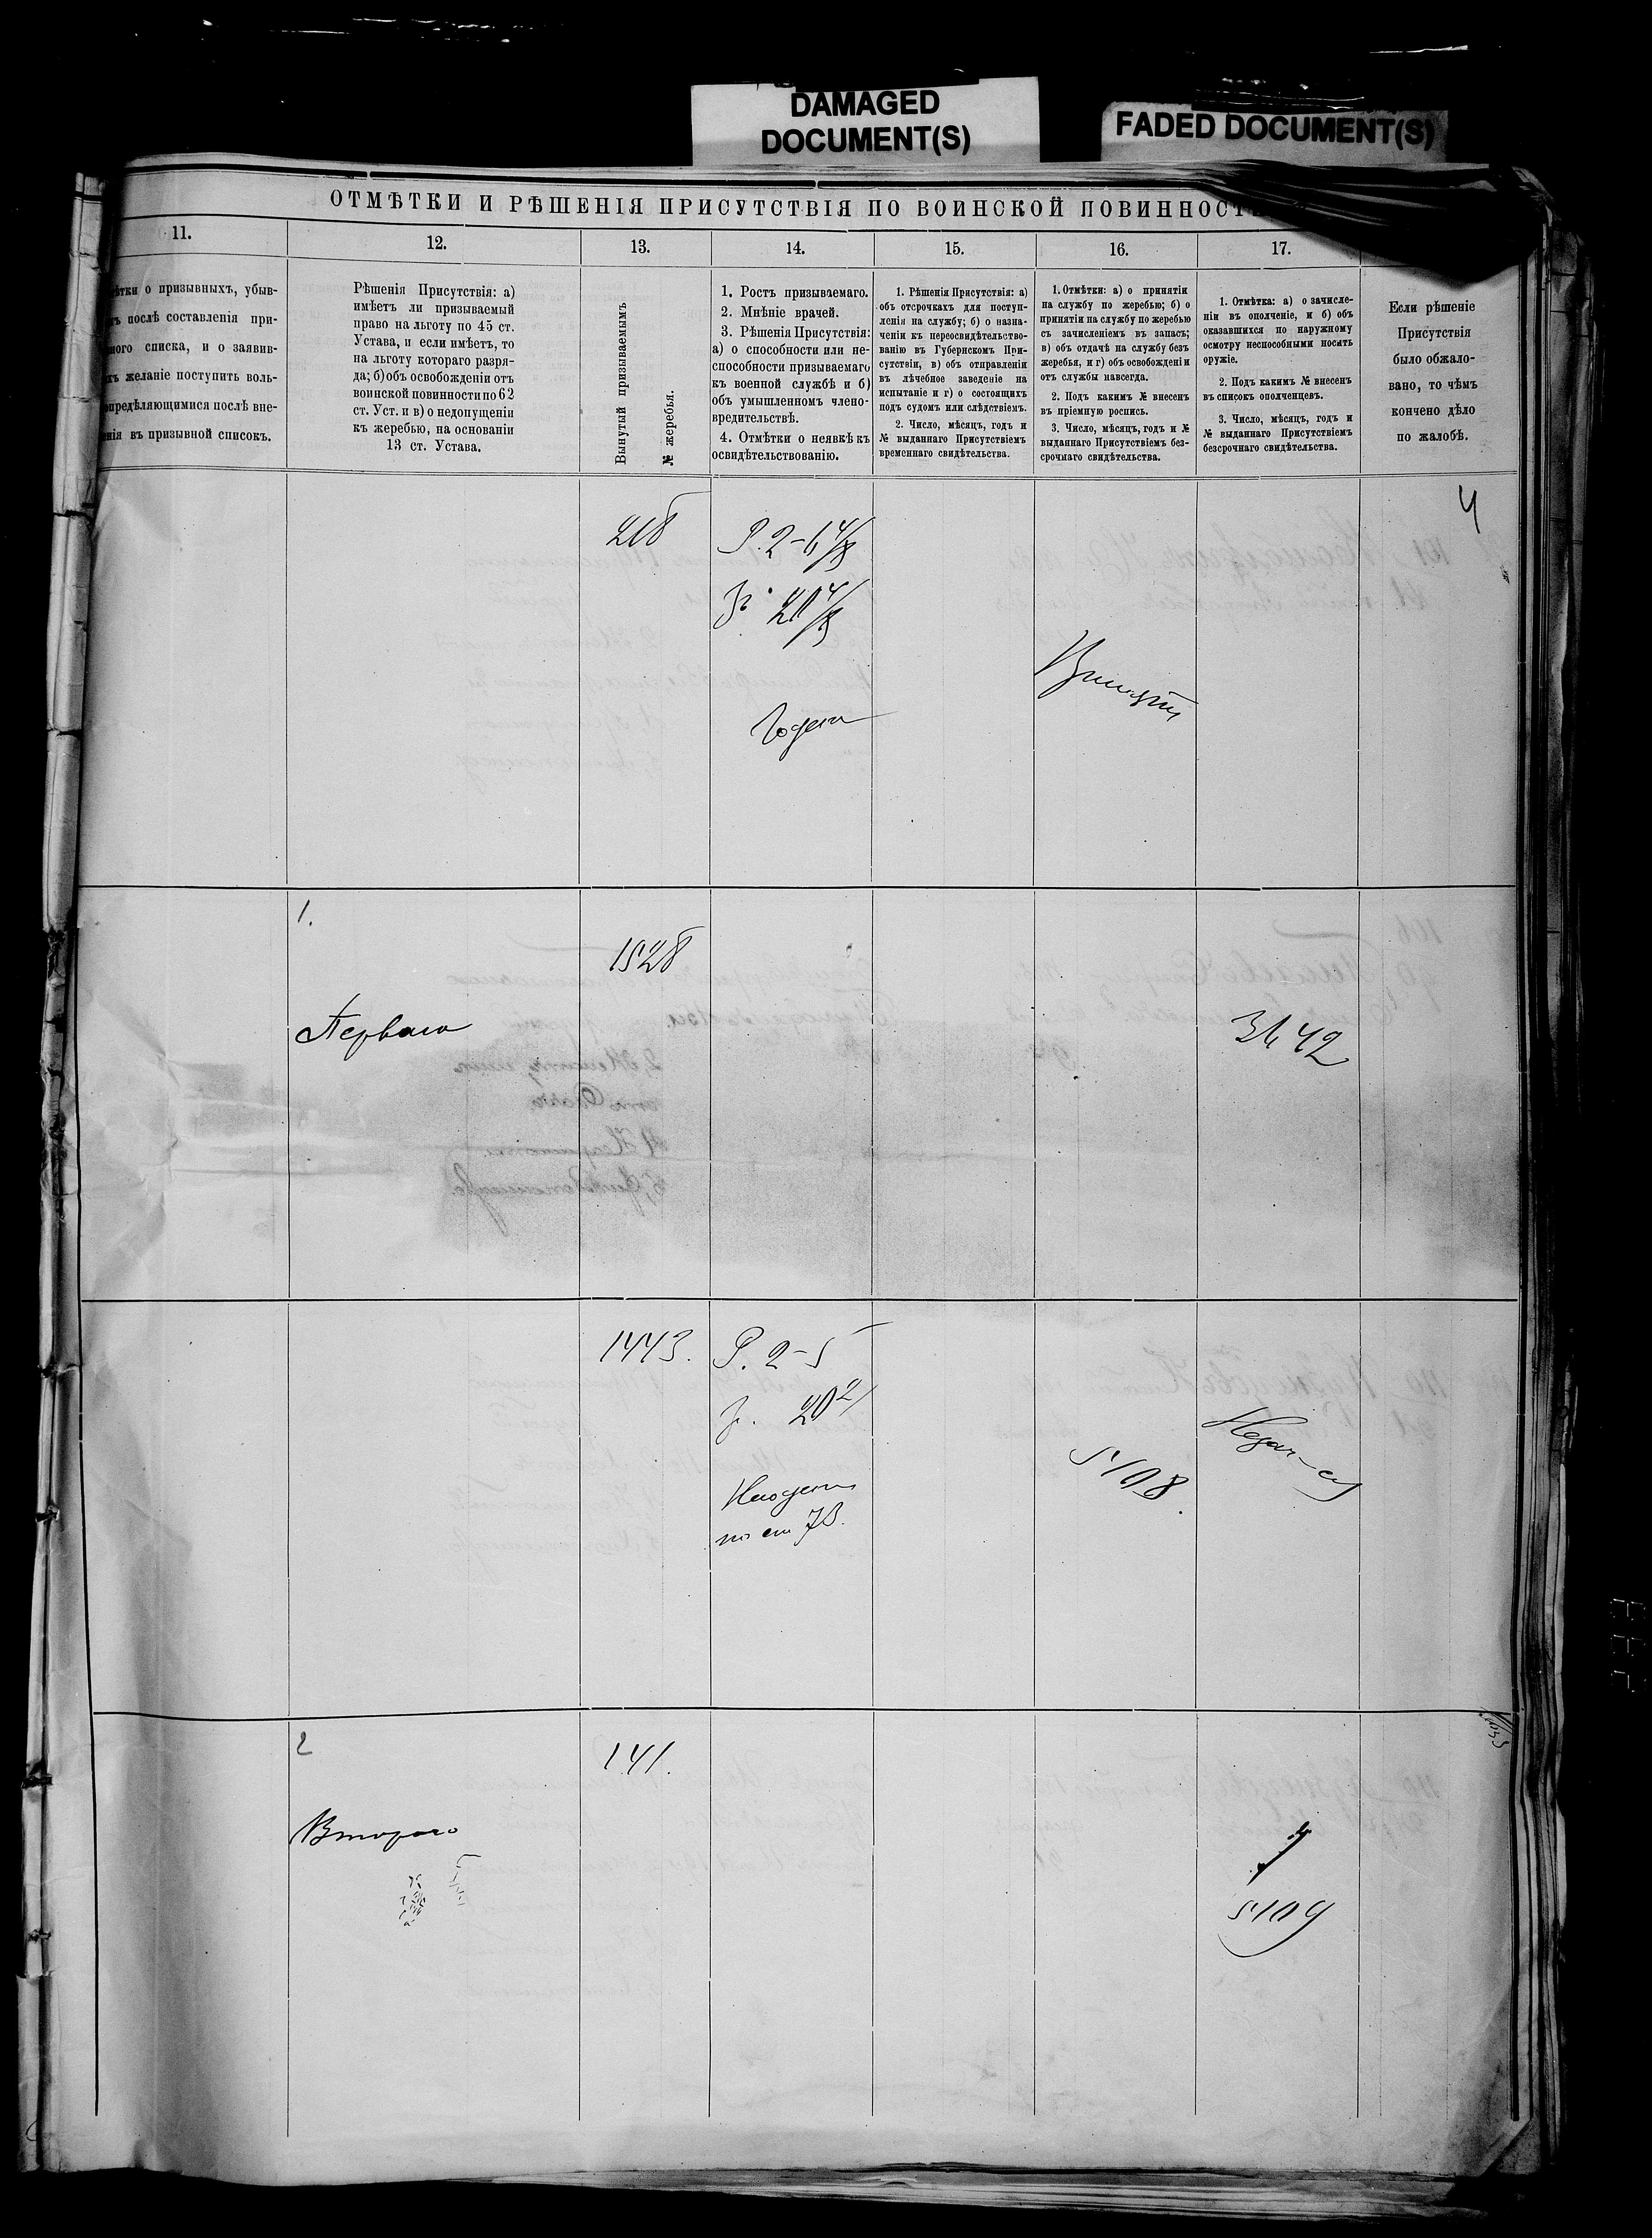 DAMAGED
DOCUMENT(S)
FADED DOCUMENT(S)
ОТМѢТКИ И РѢШЕНІЯ ПРИСУТСТВІЯ ПО ВОИНСКОЙ ПОВИННОСТ
11.
12.
13.
14.
15.
16.
17.
о призывныхъ, убыв-
послѣ составленія при-
списка, и о заявив-
желаніе поступить воль-
опредѣляющимися послѣ вне-
въ призывной списокъ.
Рѣшенія Присутствія: а)
имѣетъ ли призываемый
право на льготу по 45 ст.
Устава, и если имѣетъ, то
на льготу котораго разря-
да; б) объ освобожденіи отъ
воинской повинности по 62
ст. Уст. и в) о недопущеніи
къ жеребью, на основаніи
13 ст. Устава.
Вынутый призываемымъ
№ жеребья.
1. Ростъ призываемаго.
2. Мнѣніе врачей.
3. Рѣшенія Присутствія:
а) о способности или не-
способности призываемаго
къ военной службѣ и б)
объ умышленномъ члено-
вредительствѣ.
4. Отмѣтки о неявкѣ къ
освидѣтельствованію.
1. Рѣшенія Присутствія: а)
объ отсрочкахъ для поступ-
ленія на службу; б) о назна-
ченіи къ переосвидѣтельство-
ванію въ Губернскомъ При-
сутствіи, в) объ отправленіи
въ лѣчебное заведеніе на
испытаніе и г) о состоящихъ
подъ судомъ или слѣдствіемъ.
2. Число, мѣсяцъ, годъ и
№ выданнаго Присутствіемъ
временнаго свидѣтельства.
1. Отмѣтки: а) о принятіи
на службу по жеребью; б) о
принятіи на службу по жеребью
съ зачисленіемъ въ запасъ;
в) объ отдачѣ на службу безъ
жеребья, и г) объ освобожденіи
отъ службы навсегда.
2. Подъ какимъ № внесенъ
въ пріемную роспись.
3. Число, мѣсяцъ, годъ и №
выданнаго Присутствіемъ без-
срочнаго свидѣтельства.
1. Отмѣтка: а) о зачисле-
ніи въ ополченіе, и б) объ
оказавшихся по наружному
осмотру неспособными носить
оружіе.
2. Подъ какимъ № внесенъ
въ списокъ ополченцевъ.
3. Число, мѣсяцъ, годъ и
№ выданнаго Присутствіемъ
безсрочнаго свидѣтельства.
Если рѣшеніе
Присутствія
было обжало-
вано, то чѣмъ
кончено дѣло
по жалобѣ.
4
218
Р. 2-6 4/8
20 4/8
Годенъ
1.
1528
Перваго
3642
1443.
Р. 2-5
20 2/
по ст 73.
5108.
2
141.
Втораго
5109